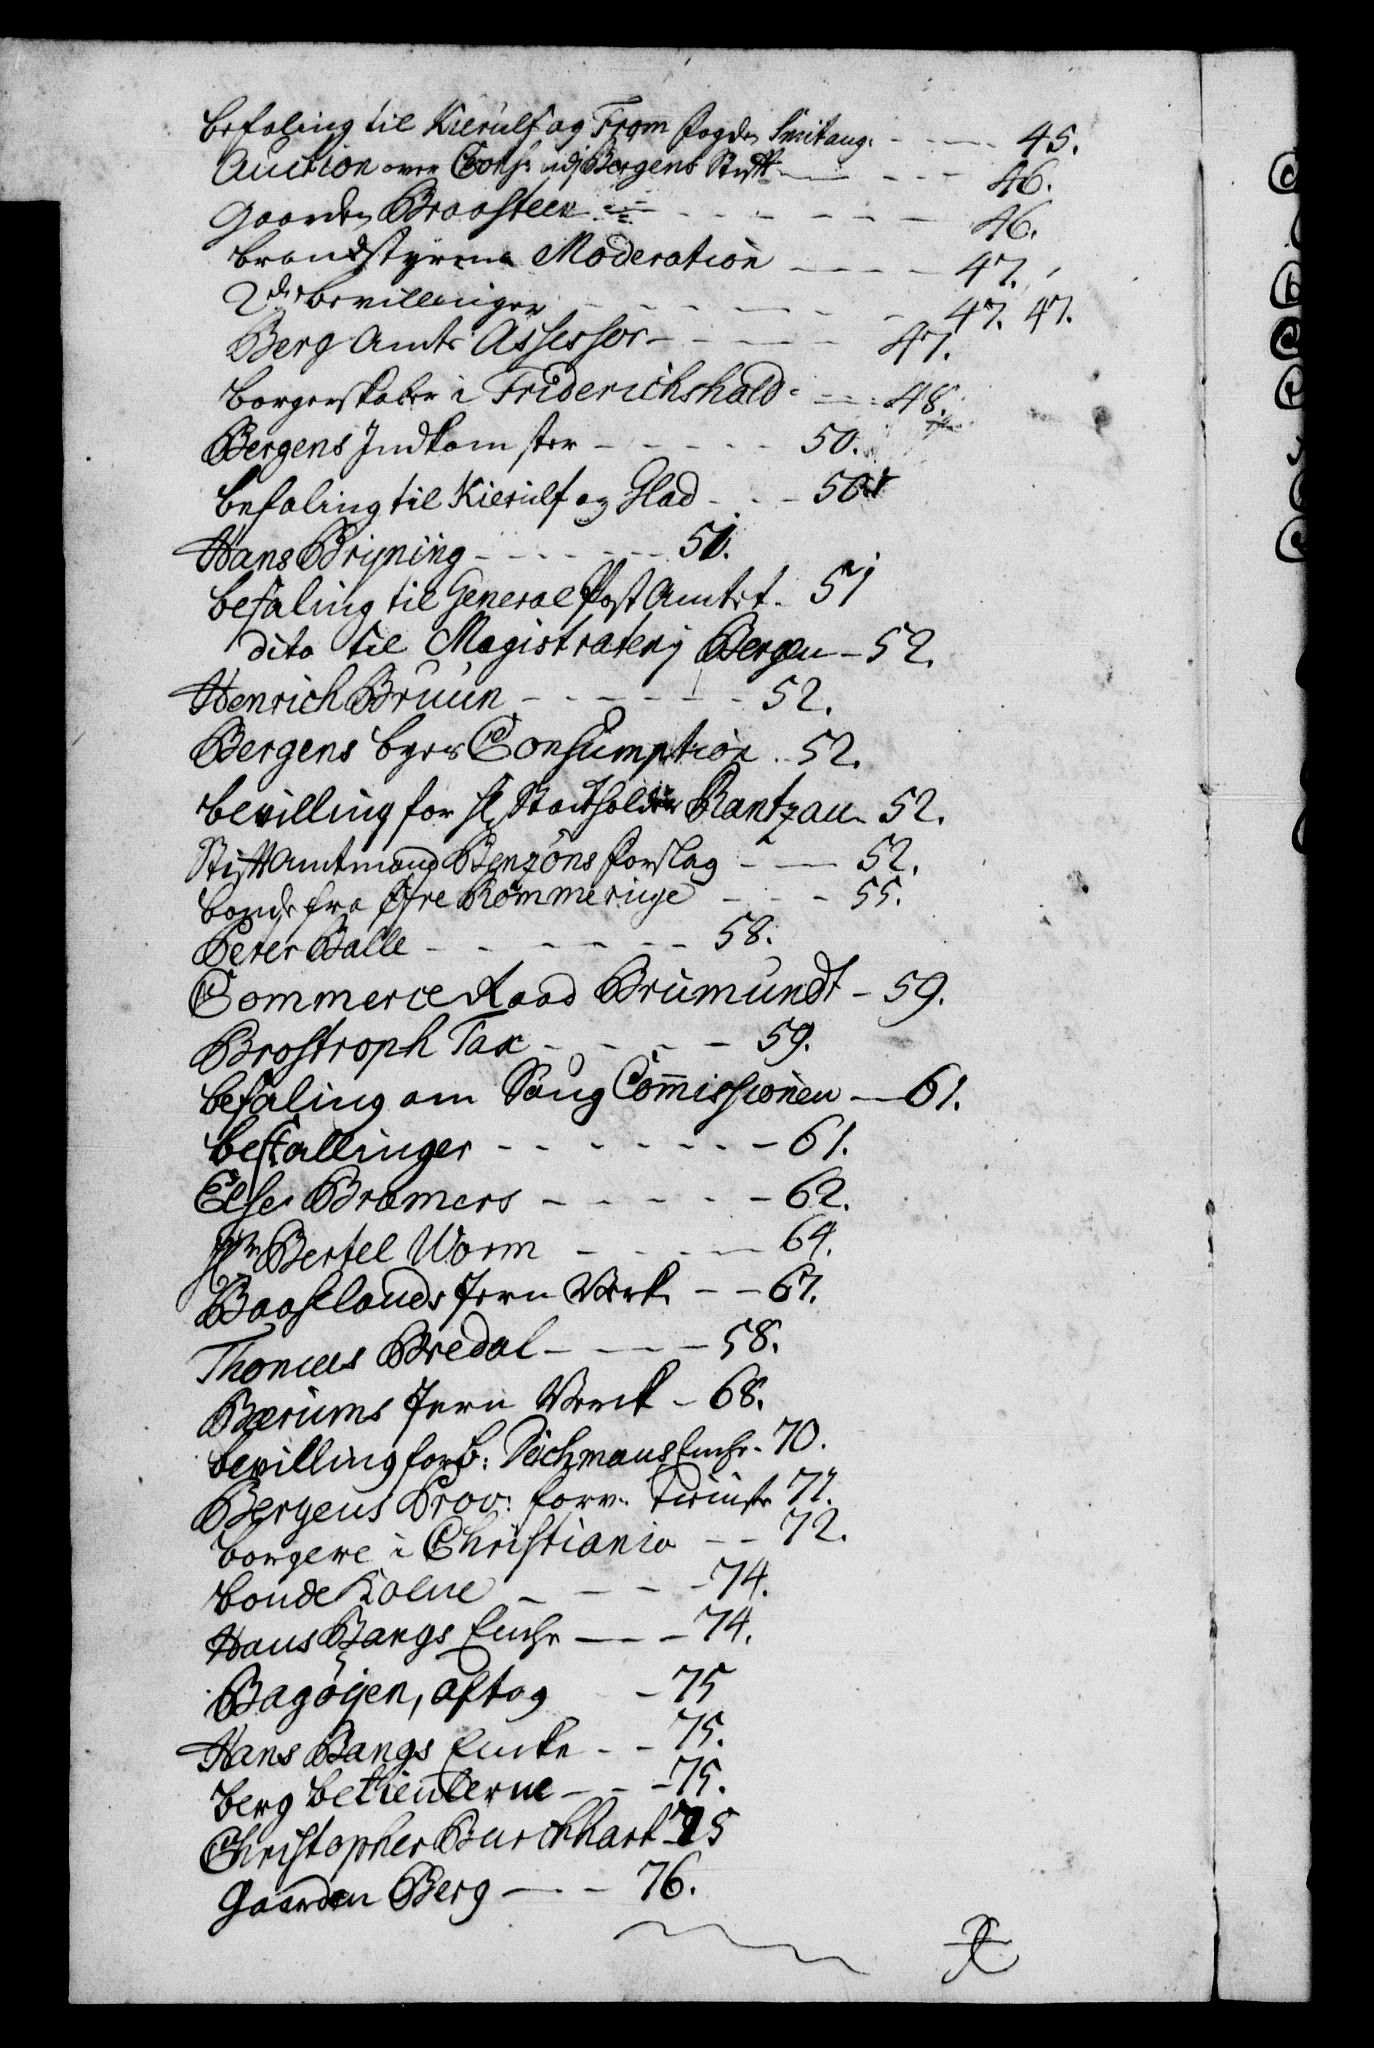 befaling til Kierulf og From fogden Smitaug. - - - 45.
Auction over Cons: udj Bergens Stift - - - 46.
Gaarden Braasteen - - - 46.
brandstyrene Moderation - - - 47.
2de bevillinger - - - 47. 47.
Berg Amts Assessor - - - 47.
borgerskaber i Friderichshald - - - 48.
Bergens Indkomster - - - 50.
befaling til Kierulf og Glad - - - 50
Hans Bryning - - - 51.
befaling til General Post Amtet - 51
dito til Magistraten j Bergen - 52.
Henrich Bruun - - - 52.
Bergens byes Consumption - 52.
bevilling for Hr Stadtholder Rantzau - 52.
Stift Amtmand Benzons forslag - - 52.
bonde fra Øfre Rommerige - - - 55.
Peter Balle - - - 58.
Commerce Raad Brumundt - 59.
Brostroph Tax - - - 59.
befaling om Saug Commissionen - 61.
bestallinger - - - 61.
Else Bramers - - - 62.
Hr Bertel Worm - - - 64.
Baaselands Jern Verk - - 67.
Thomas Bredal - - - 58.
Bærums Jern Verck - 68.
bevilling for B: Deichmans Enche - 70.
Bergens Prov: forv: tieniste 71.
borgere i Christiania - - 72.
bonde Kolne - - - 74.
Hans Bangs Enche - - - 74.
Bagøyen, aftog - 75
Hans Bangs Encke - - 75.
berg betienterne - - - 75.
Christopher Burchhart - 75
Gaarden Berg - - - 76.